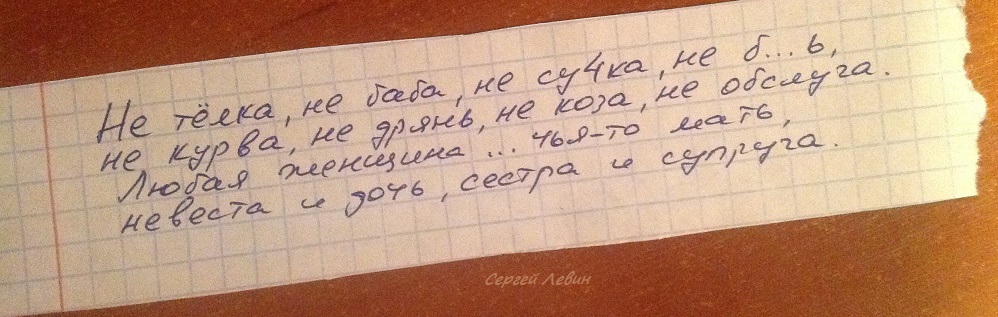 Не тёлка, не баба, не су4ка, не б...ь,
не курва, не дрянь, не коза, не обслуга.
Любая женщина ... чья-то мать,
невеста и дочь, сестра и супруга.
Сергей Левин